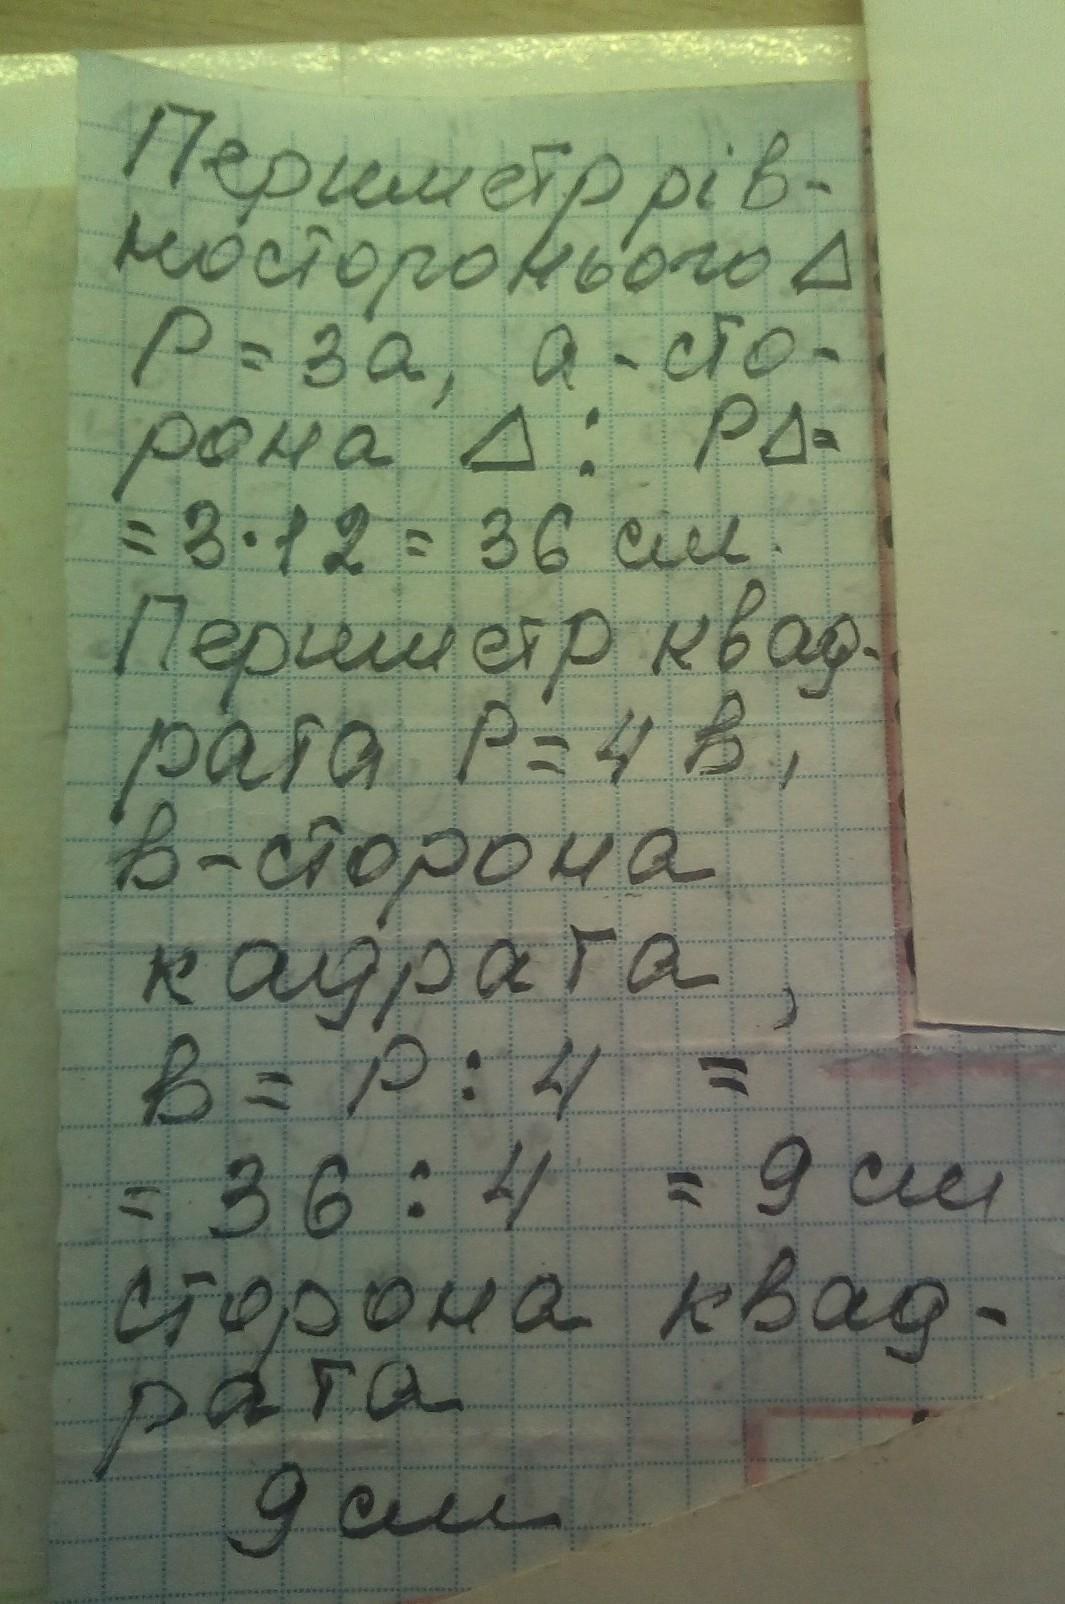 Периметр рів-
ностороннього Δ
P = 3a, а - сто-
рона Δ : PΔ=
= 3·12 = 36 см.
Периметр квад-
рата P = 4 в,
в - сторона
кадрата,
в = P : 4 =
= 36 : 4 = 9 см
сторона квад-
рата
9 см